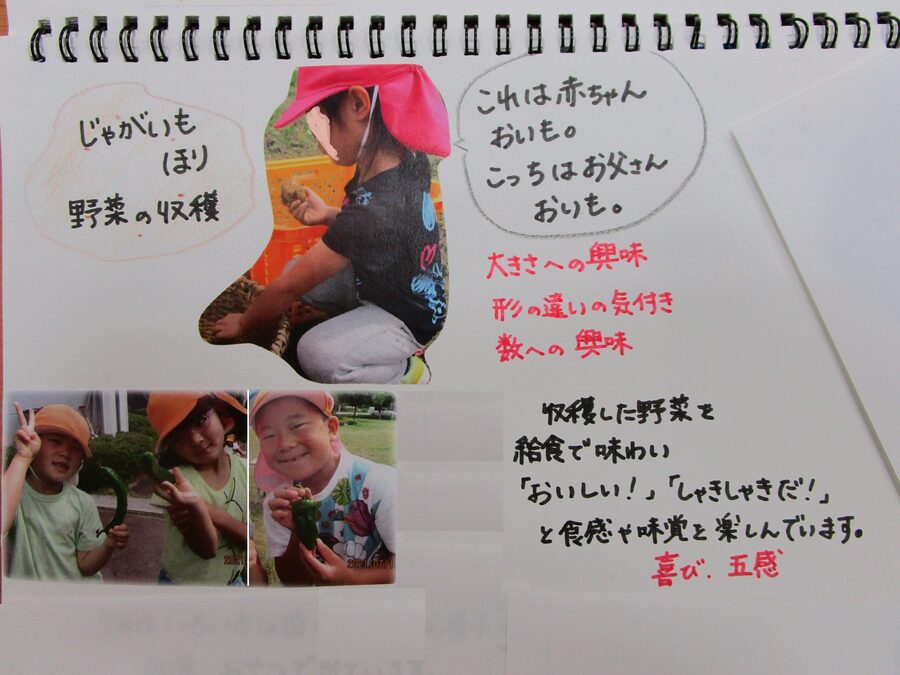 じゃがいも
ほり
野菜の収穫
これは赤ちゃん
おいも。
こっちはお父さん
おいも。
大きさへの興味
形の違いの気付き
数への興味
収穫した野菜を
給食で味わい
「おいしい!」「しゃきしゃきだ!」
と食感や味覚を楽しんでいます。
喜び、五感